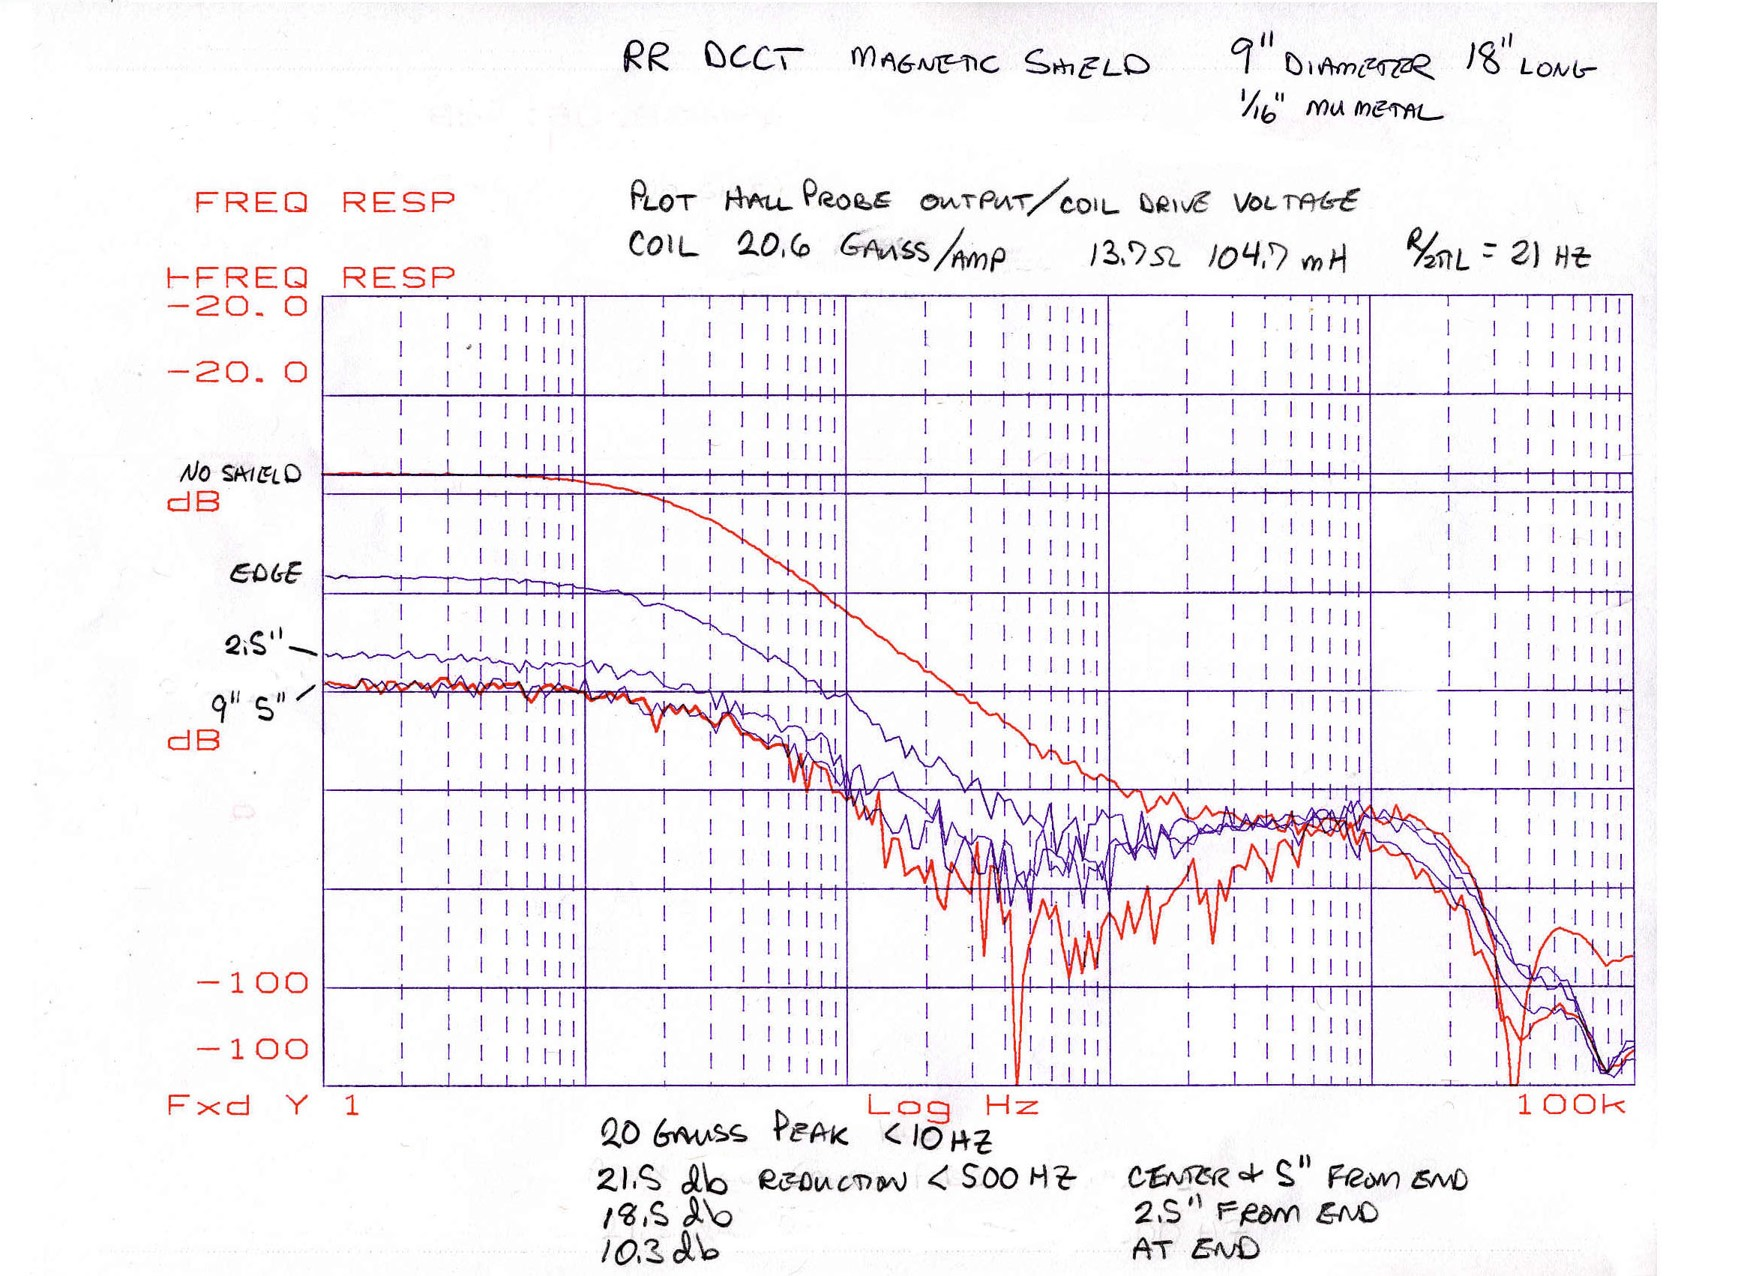 RR DCCT MAGNETIC SHIELD 9" DIAMETER 18" LONG
1/16" MU METAL
FREQ RESP PLOT HALL PROBE OUTPUT/COIL DRIVE VOLTAGE
COIL 20.6 GAUSS/AMP 13.7Ω 104.7 mH R/2πL = 21 HZ
FREQ RESP
-20.0
-20.0
NO SHIELD
dB
EDGE
2.5"
9" 5"
dB
-100
-100
Fxd Y 1 Log Hz 100k
20 GAUSS PEAK <10 HZ
21.5 db REDUCTION < 500 HZ CENTER & 5" FROM END
18.5 db 2.5" FROM END
10.3 db AT END